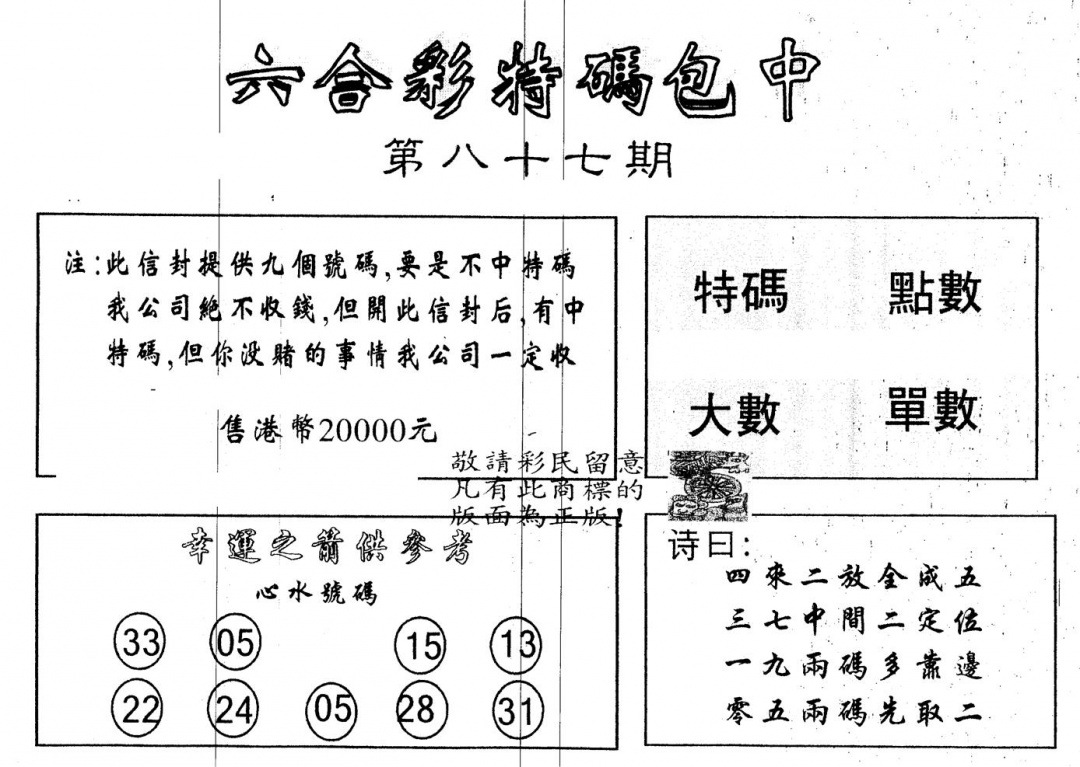 六合彩特碼包中
第八十七期
注:此信封提供九個號碼,要是不中特碼
我公司絶不收錢,但開此信封后,有中
特碼,但你没賭的事情我公司一定收
售港幣20000元
特碼 點數
大數 單數
敬請彩民留意
凡有此商標的
版面為正版!
幸運之箭供參考
心水號碼
33 05 15 13
22 24 05 28 31
诗曰:
四來二放全成五
三七中間二定位
一九兩碼多靠邊
零五兩碼先取二